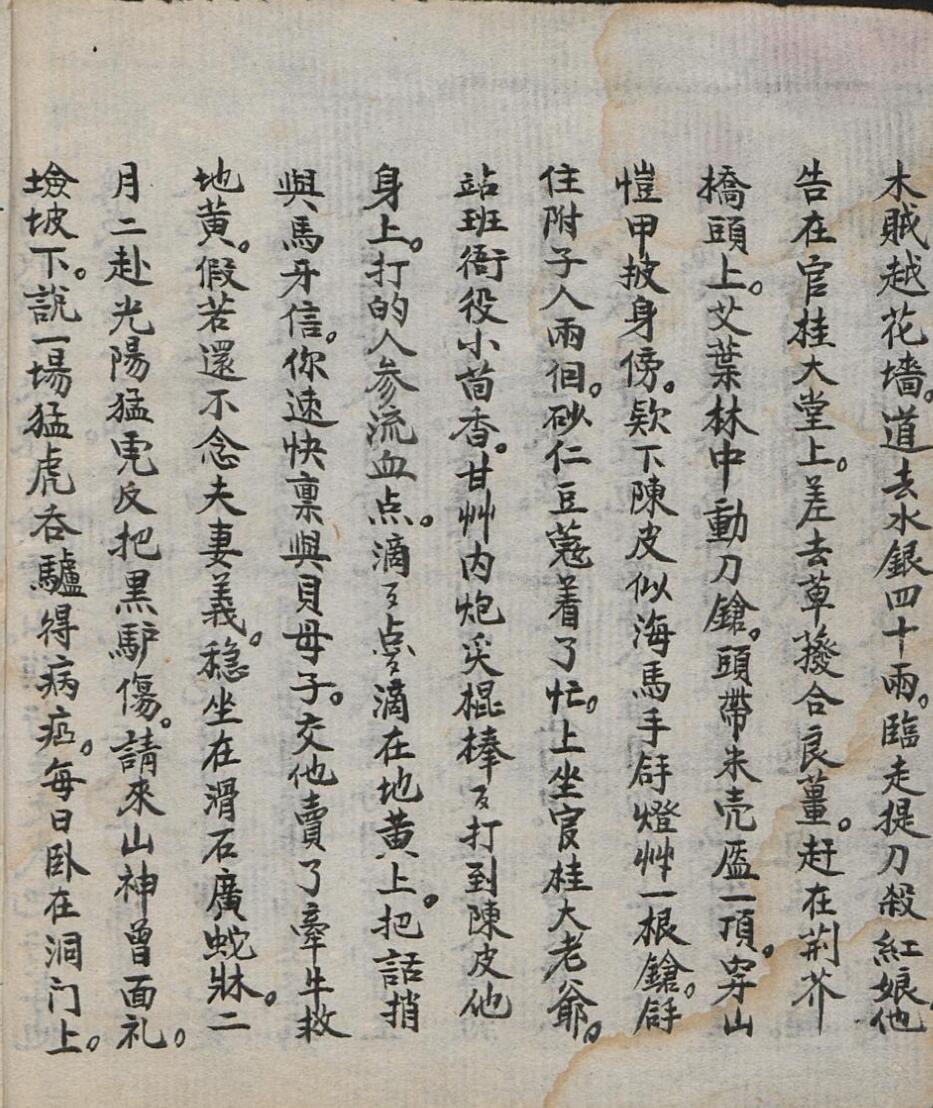 木賊越花墻。道去水銀四十兩。臨走提刀殺紅娘。他
告在官桂大堂上。差去草撥合良薑。赶在荆芥
撟頭上。艾葉林中動刀鎗。頭帶米壳盔一項。穿山
愷甲披身傍。欵下陳皮似海馬手拿燈艸一根鎗。拿
住附子人兩個。砂仁豆蔻着了忙。上坐官桂大老爺。
站班衙役小茴香。甘艸內炮尖棍棒々打到陳皮他
身上。打的人参流血点。滴々点滴在地黄上。把話捎
與馬牙信。你速快禀與貝母子。交他賣了牽牛救
地黄。假若還不念夫妻義。穏坐在滑石廣蛇牀。二
月二赴光陽猛虎反把黒馿傷。請來山神曾面礼。
墝坡下。說一場猛虎吞驢得病症。每日卧在洞门上。